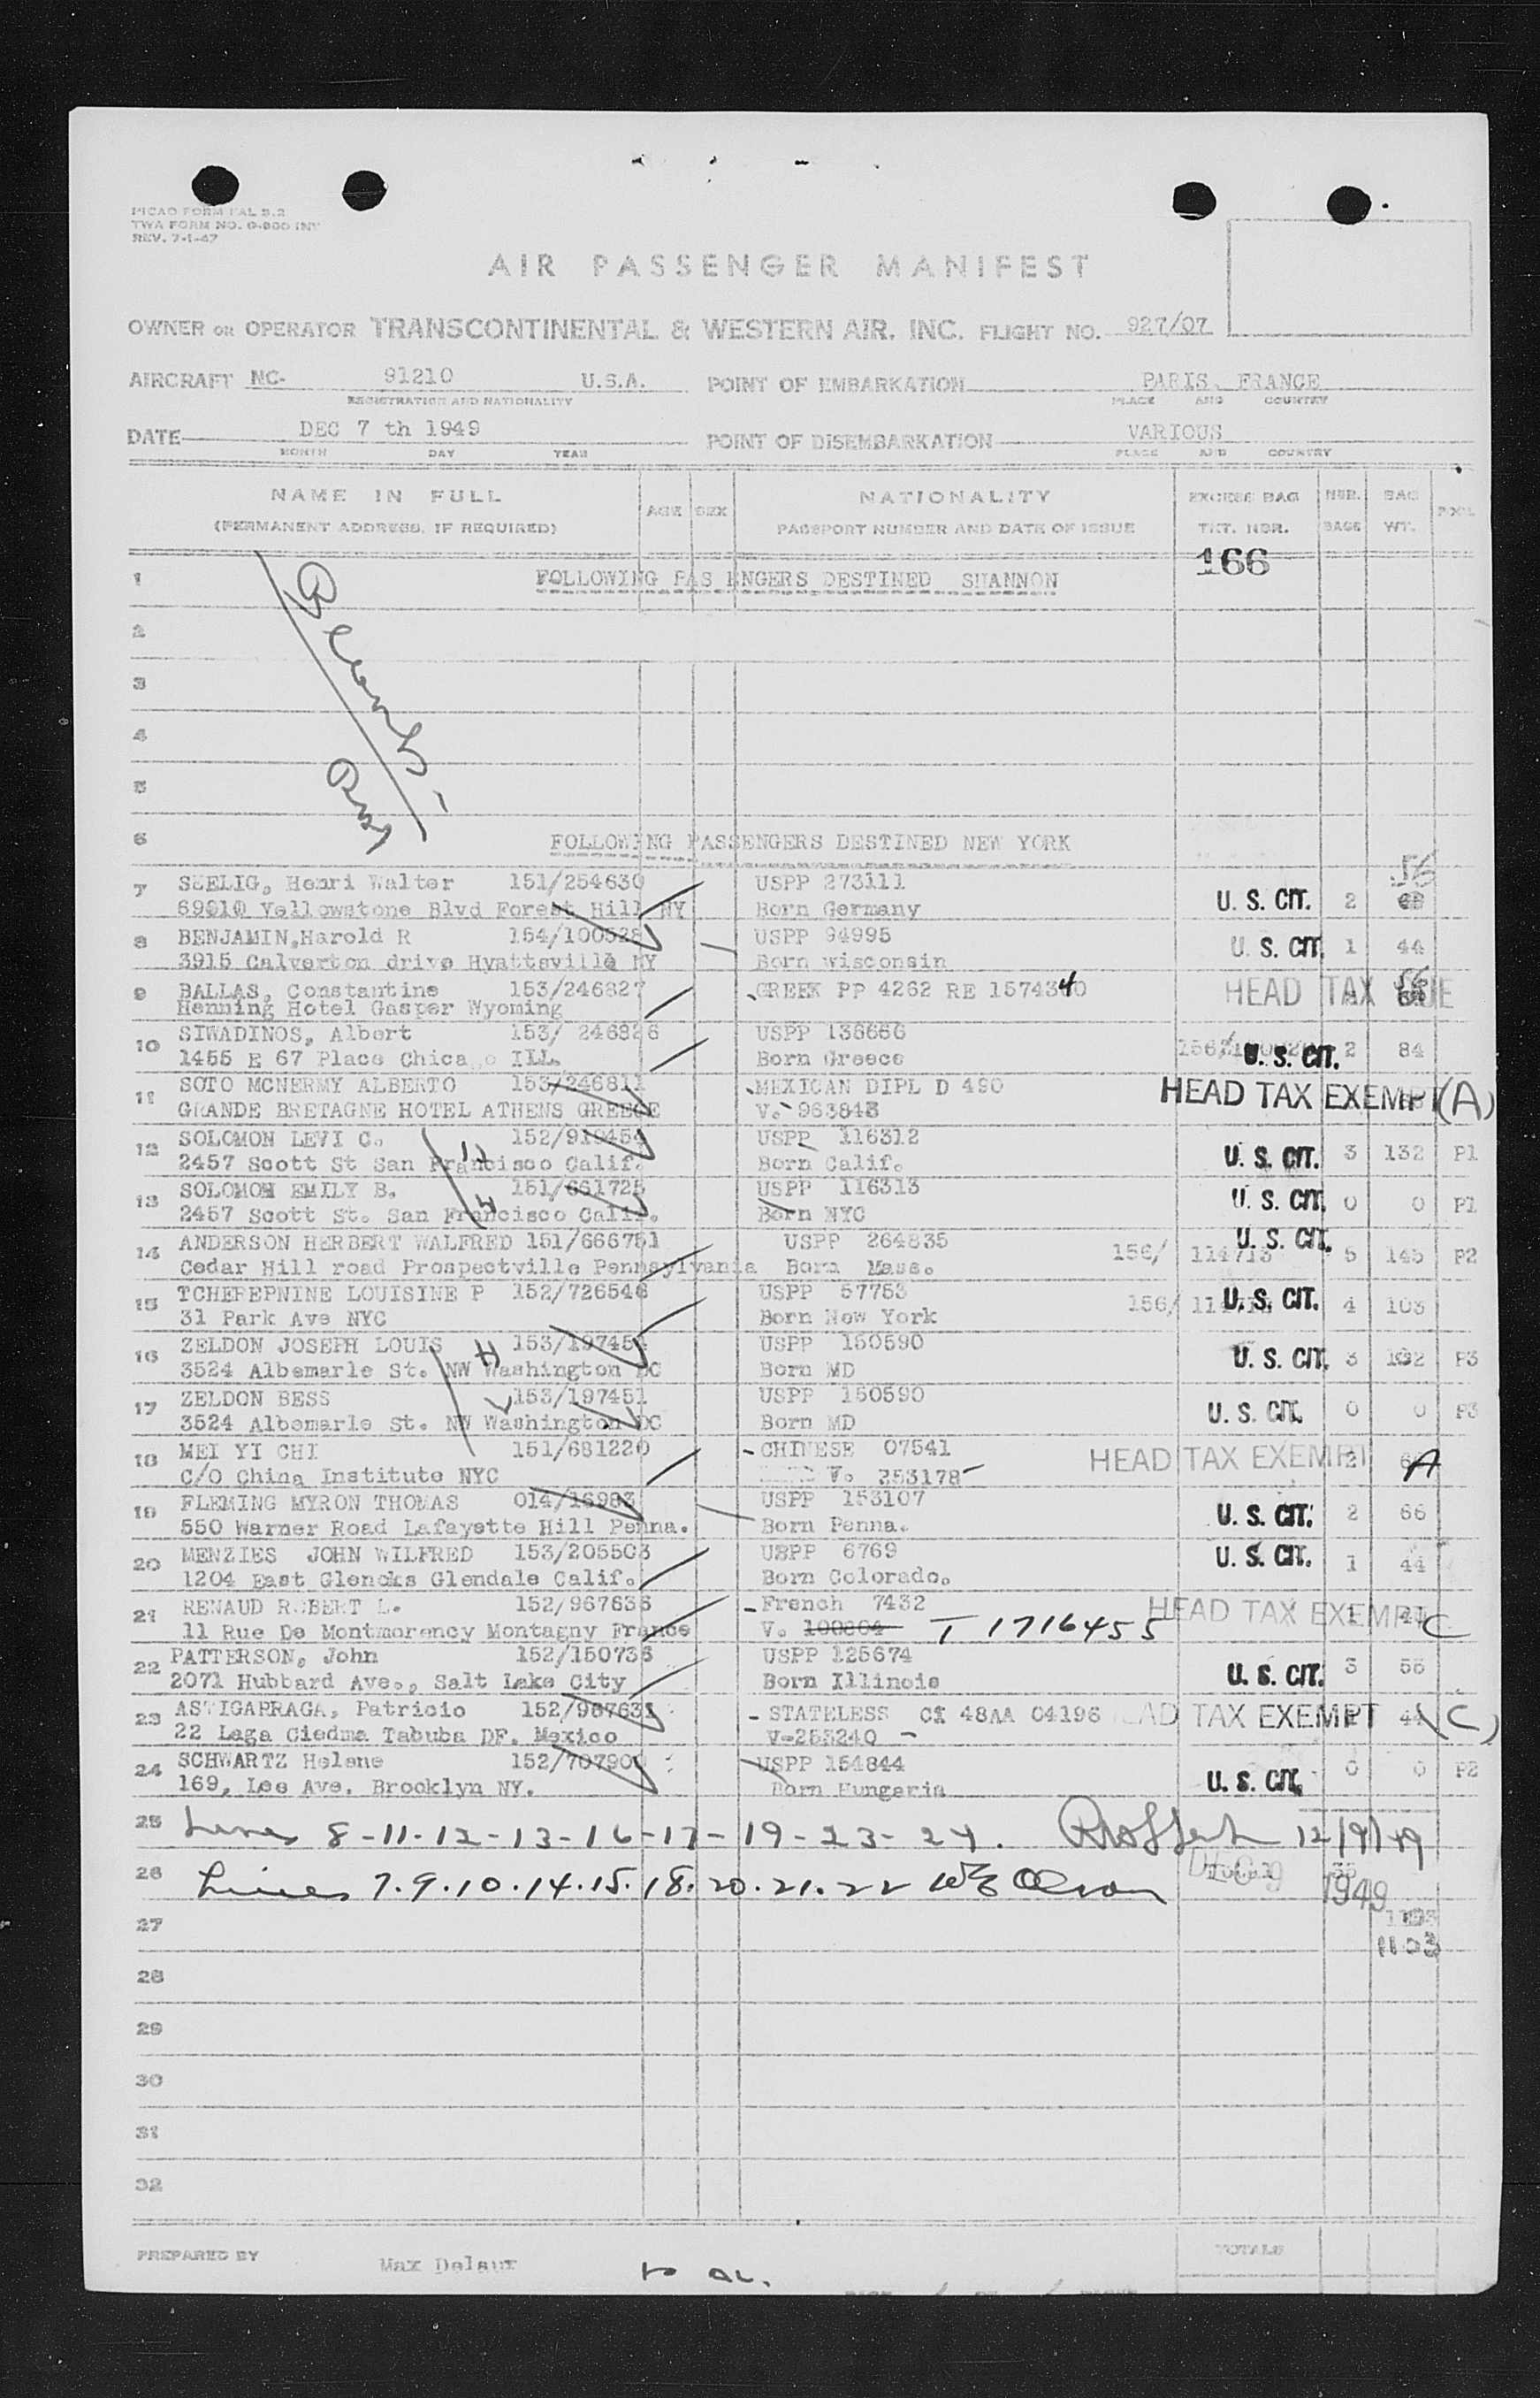 PICAO FORM FAL 9.2
TWA FORM NO. O-800 INT
REV. 7-1-47
AIR PASSENGER MANIFEST
OWNER OR OPERATOR TRANSCONTINENTAL & WESTERN AIR, INC. FLIGHT NO. 927/07
AIRCRAFT NC- 91210 U.S.A. POINT OF EMBARKATION PARIS, FRANCE
REGISTRATION AND NATIONALITY PLACE AND COUNTRY
DATE DEC 7 th 1949 POINT OF DISEMBARKATION VARIOUS
MONTH DAY YEAR PLACE AND COUNTRY
NAME IN FULL AGE SEX NATIONALITY EXCESS BAG NBR. BAG POOL
(PERMANENT ADDRESS, IF REQUIRED) PASSPORT NUMBER AND DATE OF ISSUE TKT. NBR. BAGS WT.
166
1 FOLLOWING PAS ENGERS DESTINED SHANNON
2
3
4
5
6 FOLLOWING PASSENGERS DESTINED NEW YORK
7 SEELIG, Henri Walter 151/254630 USPP 273111 56
Yellowstone Blvd Forest Hill NY Born Germany U. S. CIT. 2
8 BENJAMIN, Harold R 154/100528 USPP 94995 U. S. CIT. 1 44
3915 Calverton drive Hyattsville NY Born wisconsin
9 BALLAS, Constantine 153/246827 GREEK PP 4262 RE HEAD TAX DUE
Henning Hotel Casper Wyoming
10 SIWADINOS, Albert 153/ 246826 USPP 136656
1455 E 67 Place Chica o ILL. Born Greece U. S. CIT. 2 84
11 SOTO MCNERMY ALBERTO 153/246811 MEXICAN DIPL D 490 HEAD TAX EXEMPT (A)
GRANDE BRETAGNE HOTEL ATHENS GREECE V. 963843
12 SOLOMON LEVI C. 152/910454 USPP 116312
2457 Scott St San Francisco Calif. Born Calif. U. S. CIT. 3 132 P1
13 SOLOMON EMILY B. 151/661725 USPP 116313 U. S. CIT. 0 0 P1
2457 Scott St. San Francisco Calif. Born NYC
14 ANDERSON HERBERT WALFRED 151/666751 USPP 264835 U. S. CIT.
Cedar Hill road Prospectville Pennsylvania Born Mass. 156/ 114713 5 145 P2
15 TCHEREPNINE LOUISINE P 152/726546 USPP 57753 U. S. CIT. 4 103
31 Park Ave NYC Born New York 156/
16 ZELDON JOSEPH LOUIS H 153/197454 USPP 150590 U. S. CIT. 3 102 P3
3524 Albemarle St. NW Washington DC Born MD
17 ZELDON BESS 153/197451 USPP 150590 U. S. CIT. 0 0 P3
3524 Albemarle St. NW Washington DC Born MD
18 MEI YI CHI 151/681220 CHINESE 07541 HEAD TAX EXEMPT 2 A
C/O China Institute NYC V. 253178
19 FLEMING MYRON THOMAS 014/16983 USPP 153107 U. S. CIT. 2 66
550 Warner Road Lafayette Hill Penna. Born Penna.
20 MENZIES JOHN WILFRED 153/205503 USPP 6769 U. S. CIT. 1 44
1204 East Glencks Glendale Calif. Born Colorado.
21 RENAUD ROBERT L. 152/967636 French 7432 HEAD TAX EXEMPT C
11 Rue De Montmorency Montagny France V. 100864 T 1716455
22 PATTERSON, John 152/150736 USPP 125674 U. S. CIT. 3 55
2071 Hubbard Ave., Salt Lake City Born Illinois
23 ASTIGARRAGA, Patricio 152/967631 STATELESS CI 48AA C4196 HEAD TAX EXEMPT 44 (C)
22 Laga Ciedma Tabuba DF. Mexico V-253240
24 SCHWARTZ Helene 152/707900 USPP 154844 0 0 P2
169, Lee Ave. Brooklyn NY. Born Hungaria U. S. CIT.
25 Lines 8-11-12-13-16-17-19-23-24. 12/9/49
26 Lines 7.9.10.14.15.18.20.21.22 Olson DEC 9 1949
27 1103
28
29
30
31
32
PREPARED BY Max Delaux TOTALS